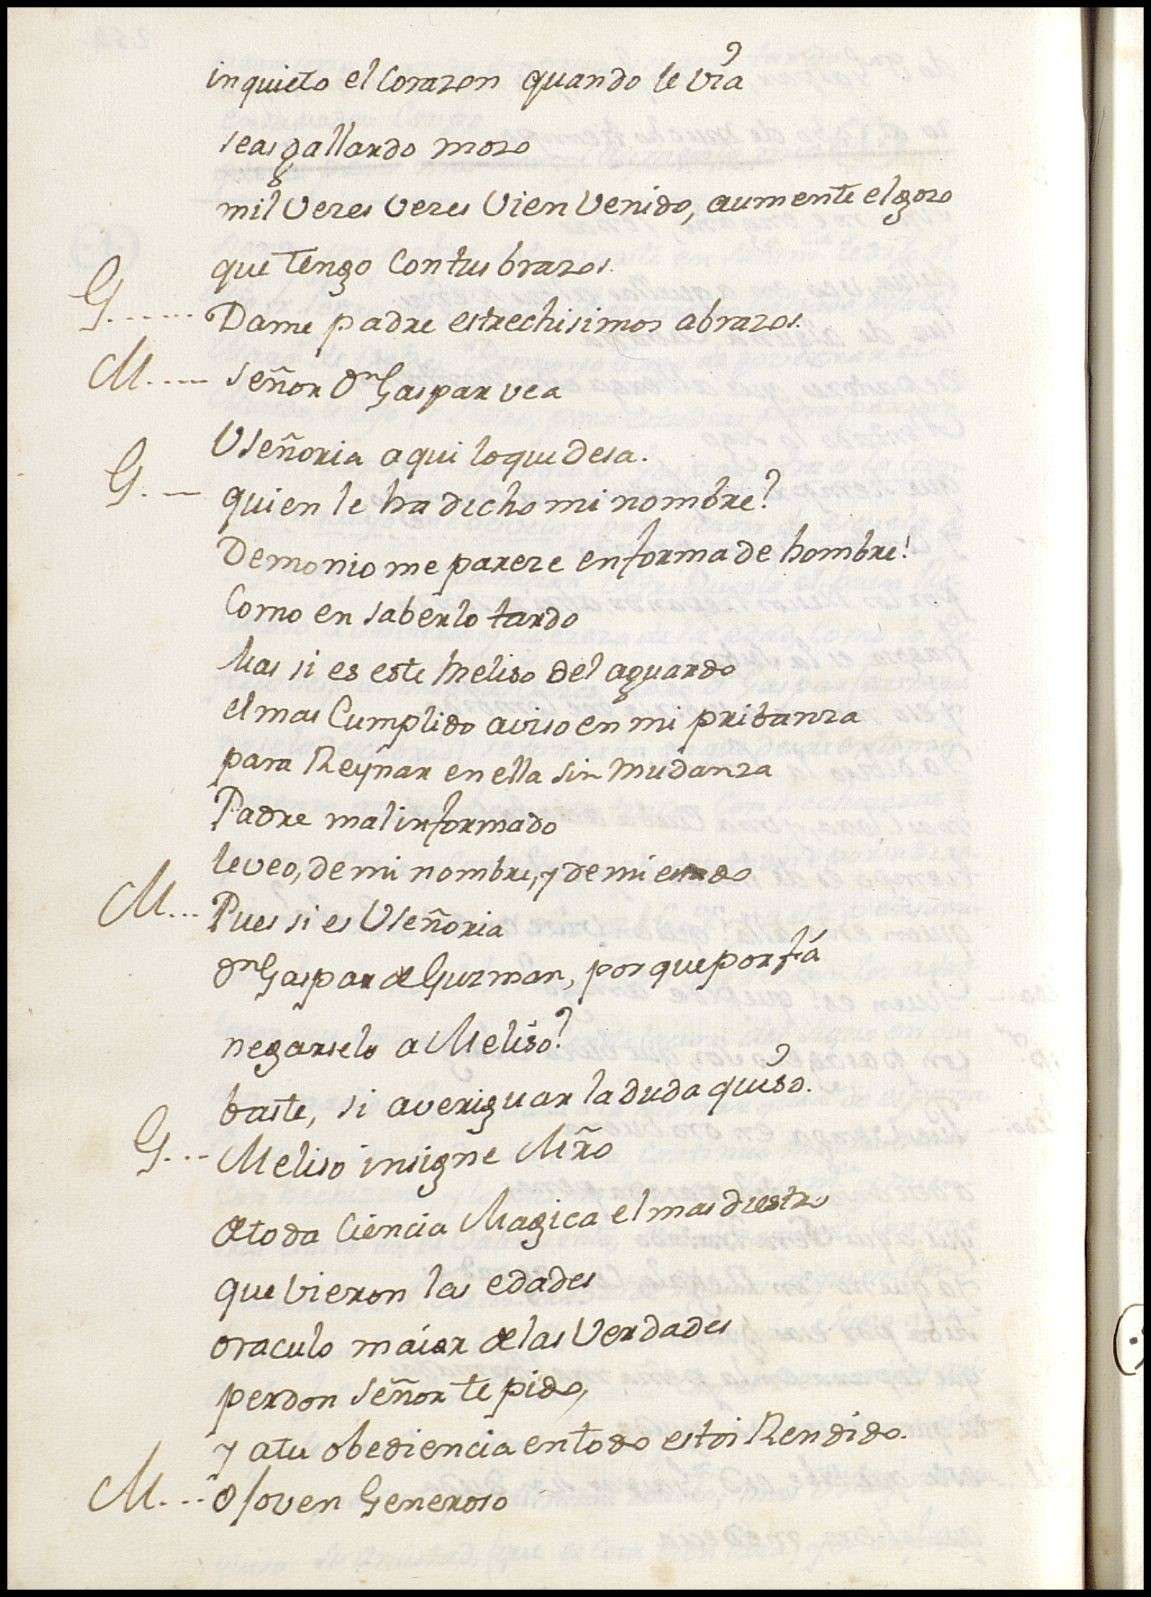 inquieto el Corazon quando le via
seas gallardo mozo
mil Vezes Vezes Vien Venido, aumente el gozo
que Tengo Con tus brazos.
G...... Dame padre estrechisimos abrazos.
M..... Señor Dn Gaspar vea
Useñoria aqui lo que desa.
G. — quien le ha dicho mi nombre?
Demonio me pareze en forma de hombre!
Como en saberlo tardo
Mas si es este Meliso del aguardo
el mas Cumplido aviso en mi pribanza
para Reynar en ella sin Mudanza
Padre mal informado
le veo, de mi nombre, y de mi estado
M... Pues si es Useñoria
Dn Gaspar de Guzman, por que porfiá
negarselo a Meliso?
baste, si averiguar la duda quiso.
G... Meliso insigne Mro
de toda Ciencia Magica el mas diestro
que Vieron las edades
oraculo maior de las Verdades
perdon Señor te pido,
y a tu obediencia en todo estoi Rendido.
M... o Joven Generoso